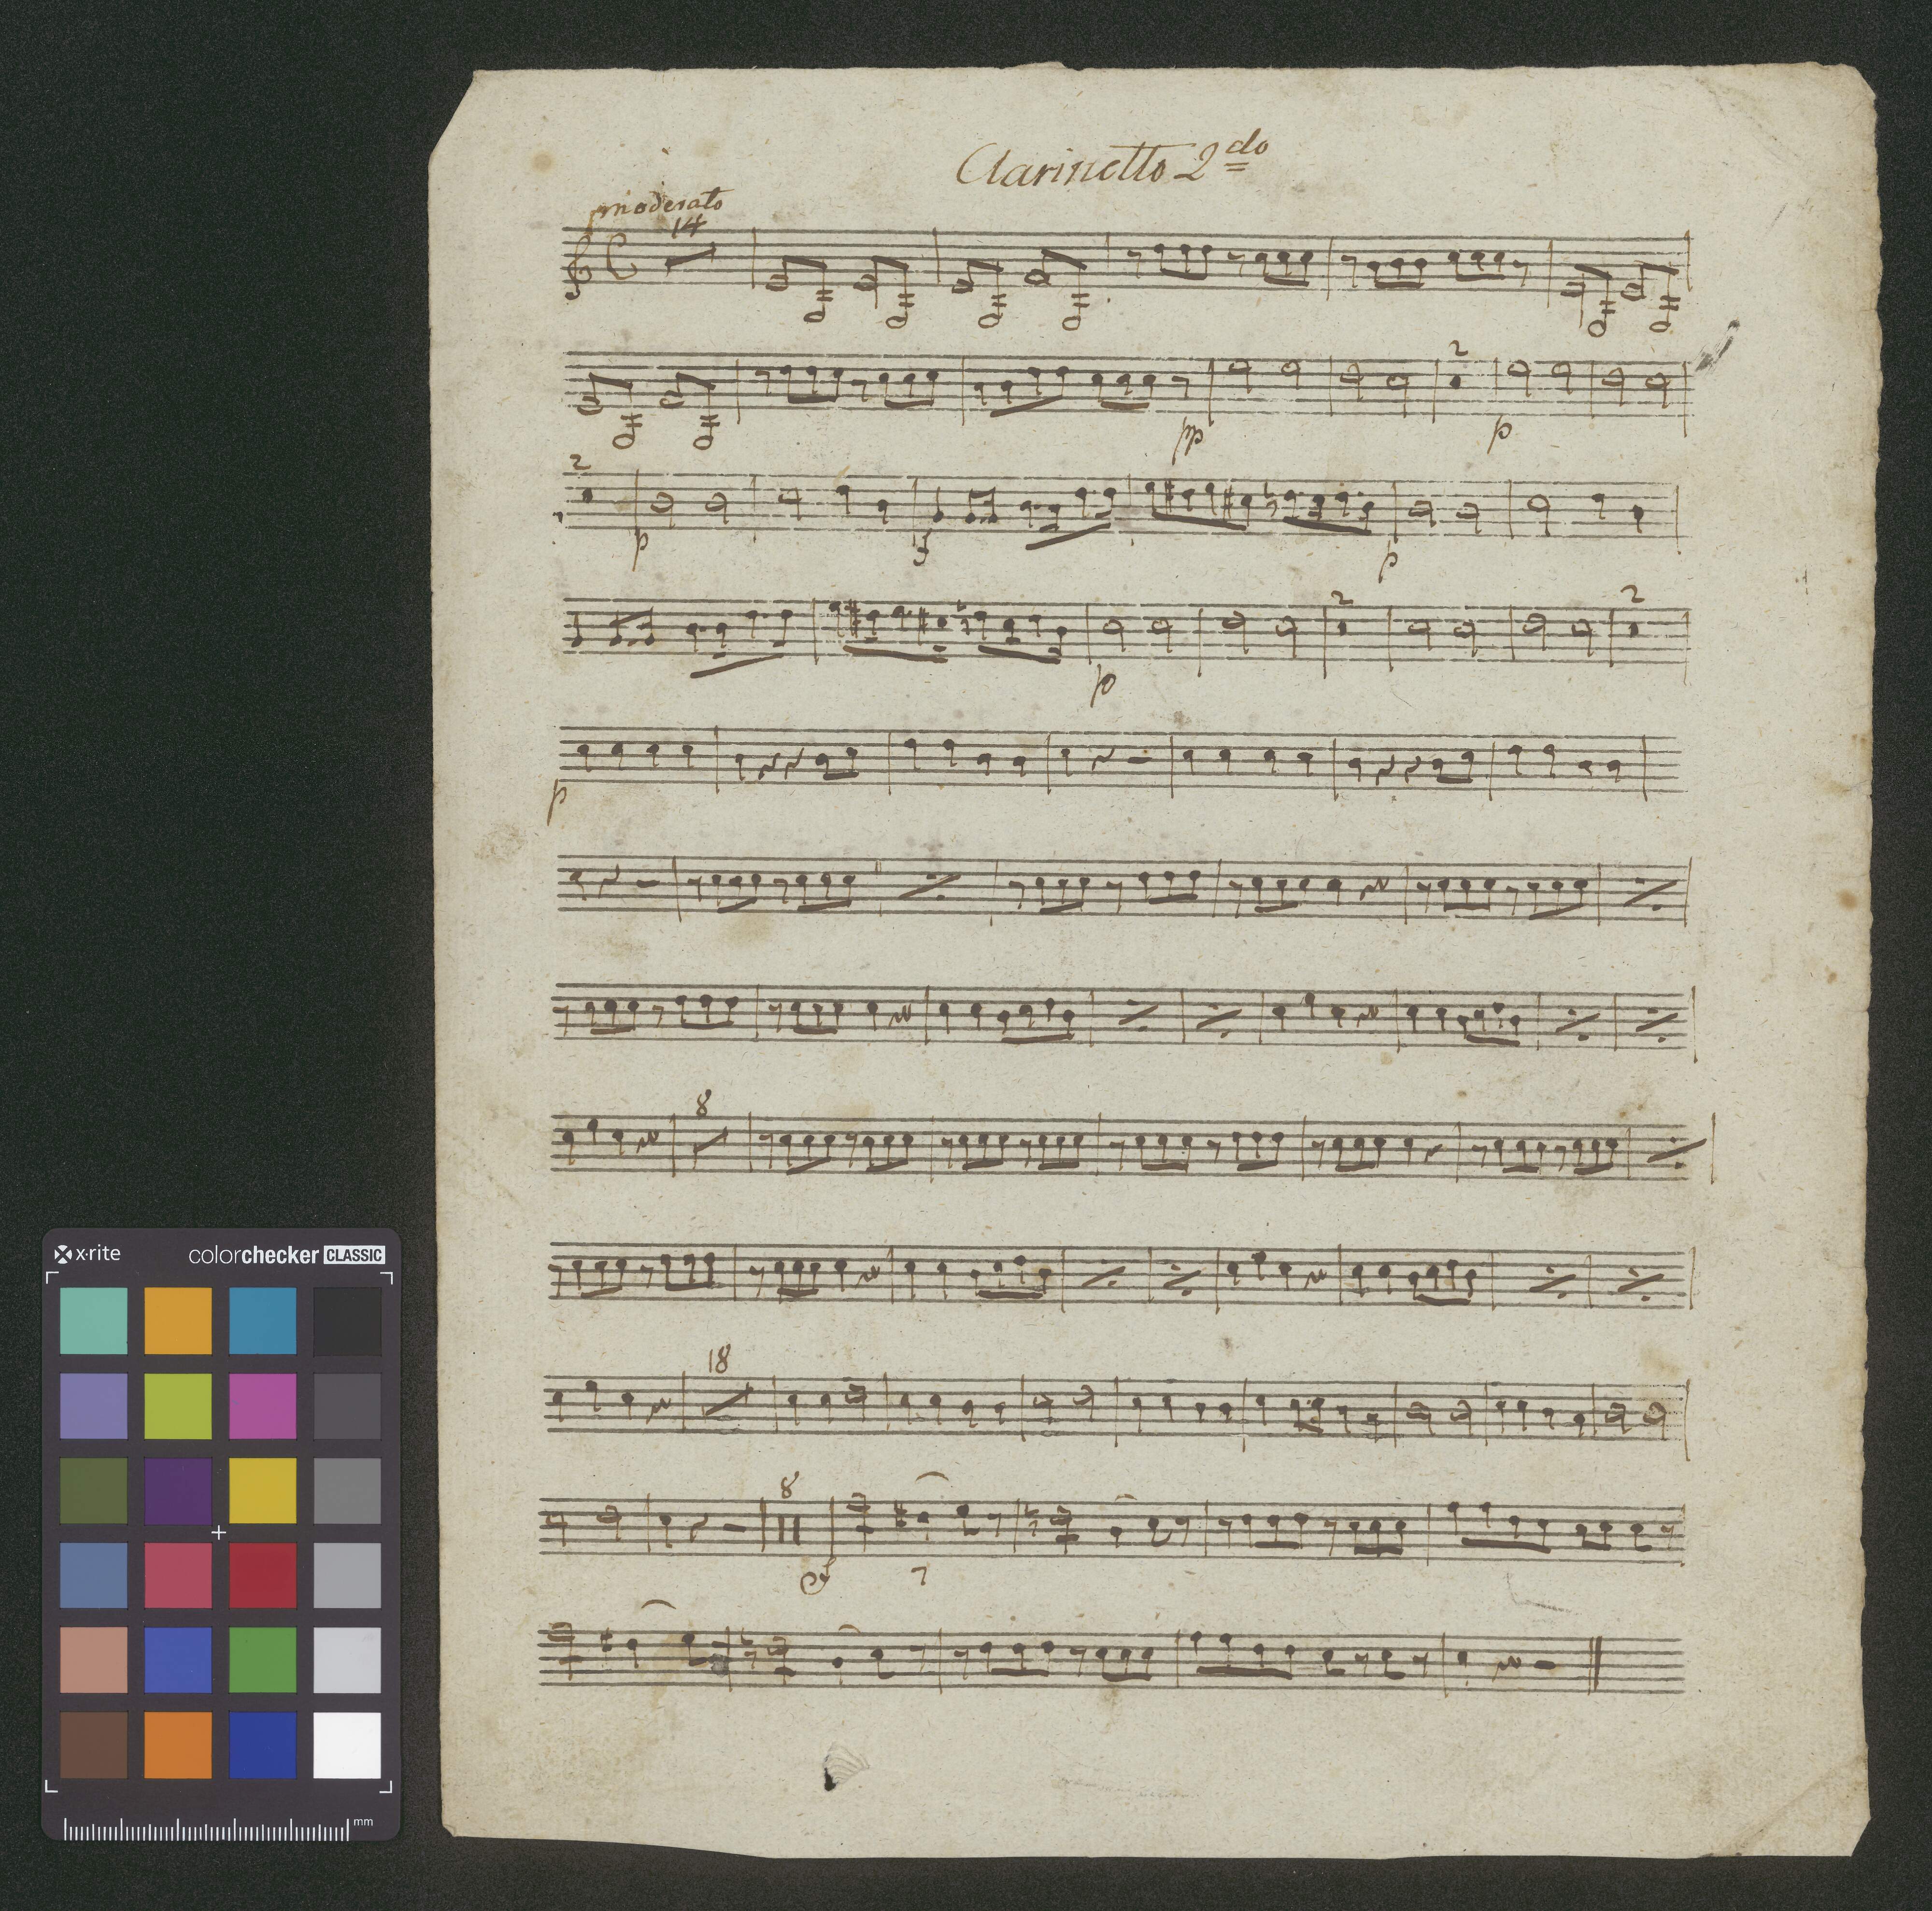 Clarinetto 2do
moderato
14
pp
2
p
2
p
f
p
p
2
2
p
8
18
8
x·rite colorchecker CLASSIC
mm